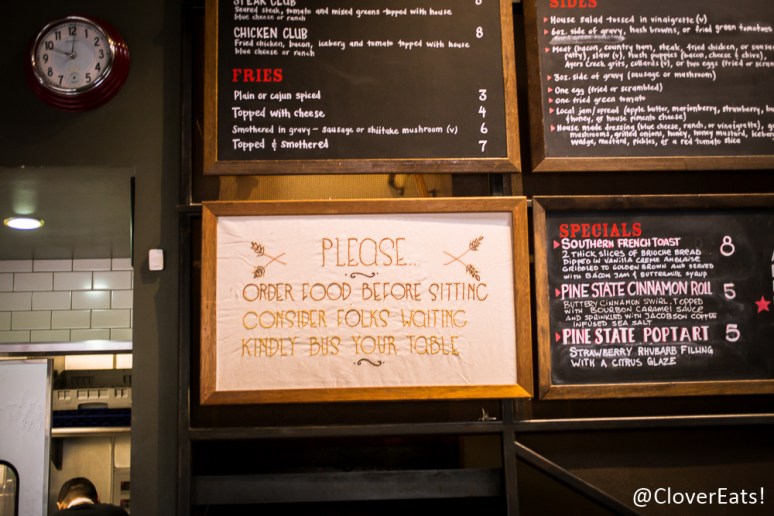 STEAK CLUB 8
Seared steak, tomato and mixed greens topped with house
blue cheese or ranch
CHICKEN CLUB 8
Fried chicken, bacon, iceberg and tomato topped with house
blue cheese or ranch
FRIES
Plain or cajun spiced 3
Topped with cheese 4
Smothered in gravy - sausage or shiitake mushroom (v) 6
Topped & smothered 7
SIDES
House salad tossed in vinaigrette (v)
6oz. side of gravy, hash browns, or fried green tomatoes
Meat (bacon, country ham, steak, fried chicken, or sausage
patty), slaw (v), hush puppies (bacon, cheese & chive),
Ayers Creek grits, collards (v), or two eggs (fried or scram
3oz. side of gravy (sausage or mushroom)
One egg (fried or scrambled)
one fried green tomato
Local jam/spread (apple butter, marionberry, strawberry,
honey, or house pimento cheese)
House made dressing (blue cheese, ranch, or vinaigrette),
mushrooms, grilled onions, honey, honey mustard, iceberg
wedge, mustard, pickles, or a red tomato slice
PLEASE...
ORDER FOOD BEFORE SITTING
CONSIDER FOLKS WAITING
KINDLY BUS YOUR TABLE
SPECIALS
SOUTHERN FRENCH TOAST 8
2 THICK SLICES OF BRIOCHE BREAD
DIPPED IN VANILLA CREME ANGLAISE
GRIDDLED TO GOLDEN BROWN AND SERVED
WITH BACON JAM & BUTTERMILK SYRUP
PINE STATE CINNAMON ROLL 5
BUTTERY CINNAMON SWIRL, TOPPED
WITH BOURBON CARAMEL SAUCE
AND SPRINKLED WITH JACOBSON COFFEE
INFUSED SEA SALT
PINE STATE POPTART 5
STRAWBERRY RHUBARB FILLING
WITH A CITRUS GLAZE
@CloverEats!